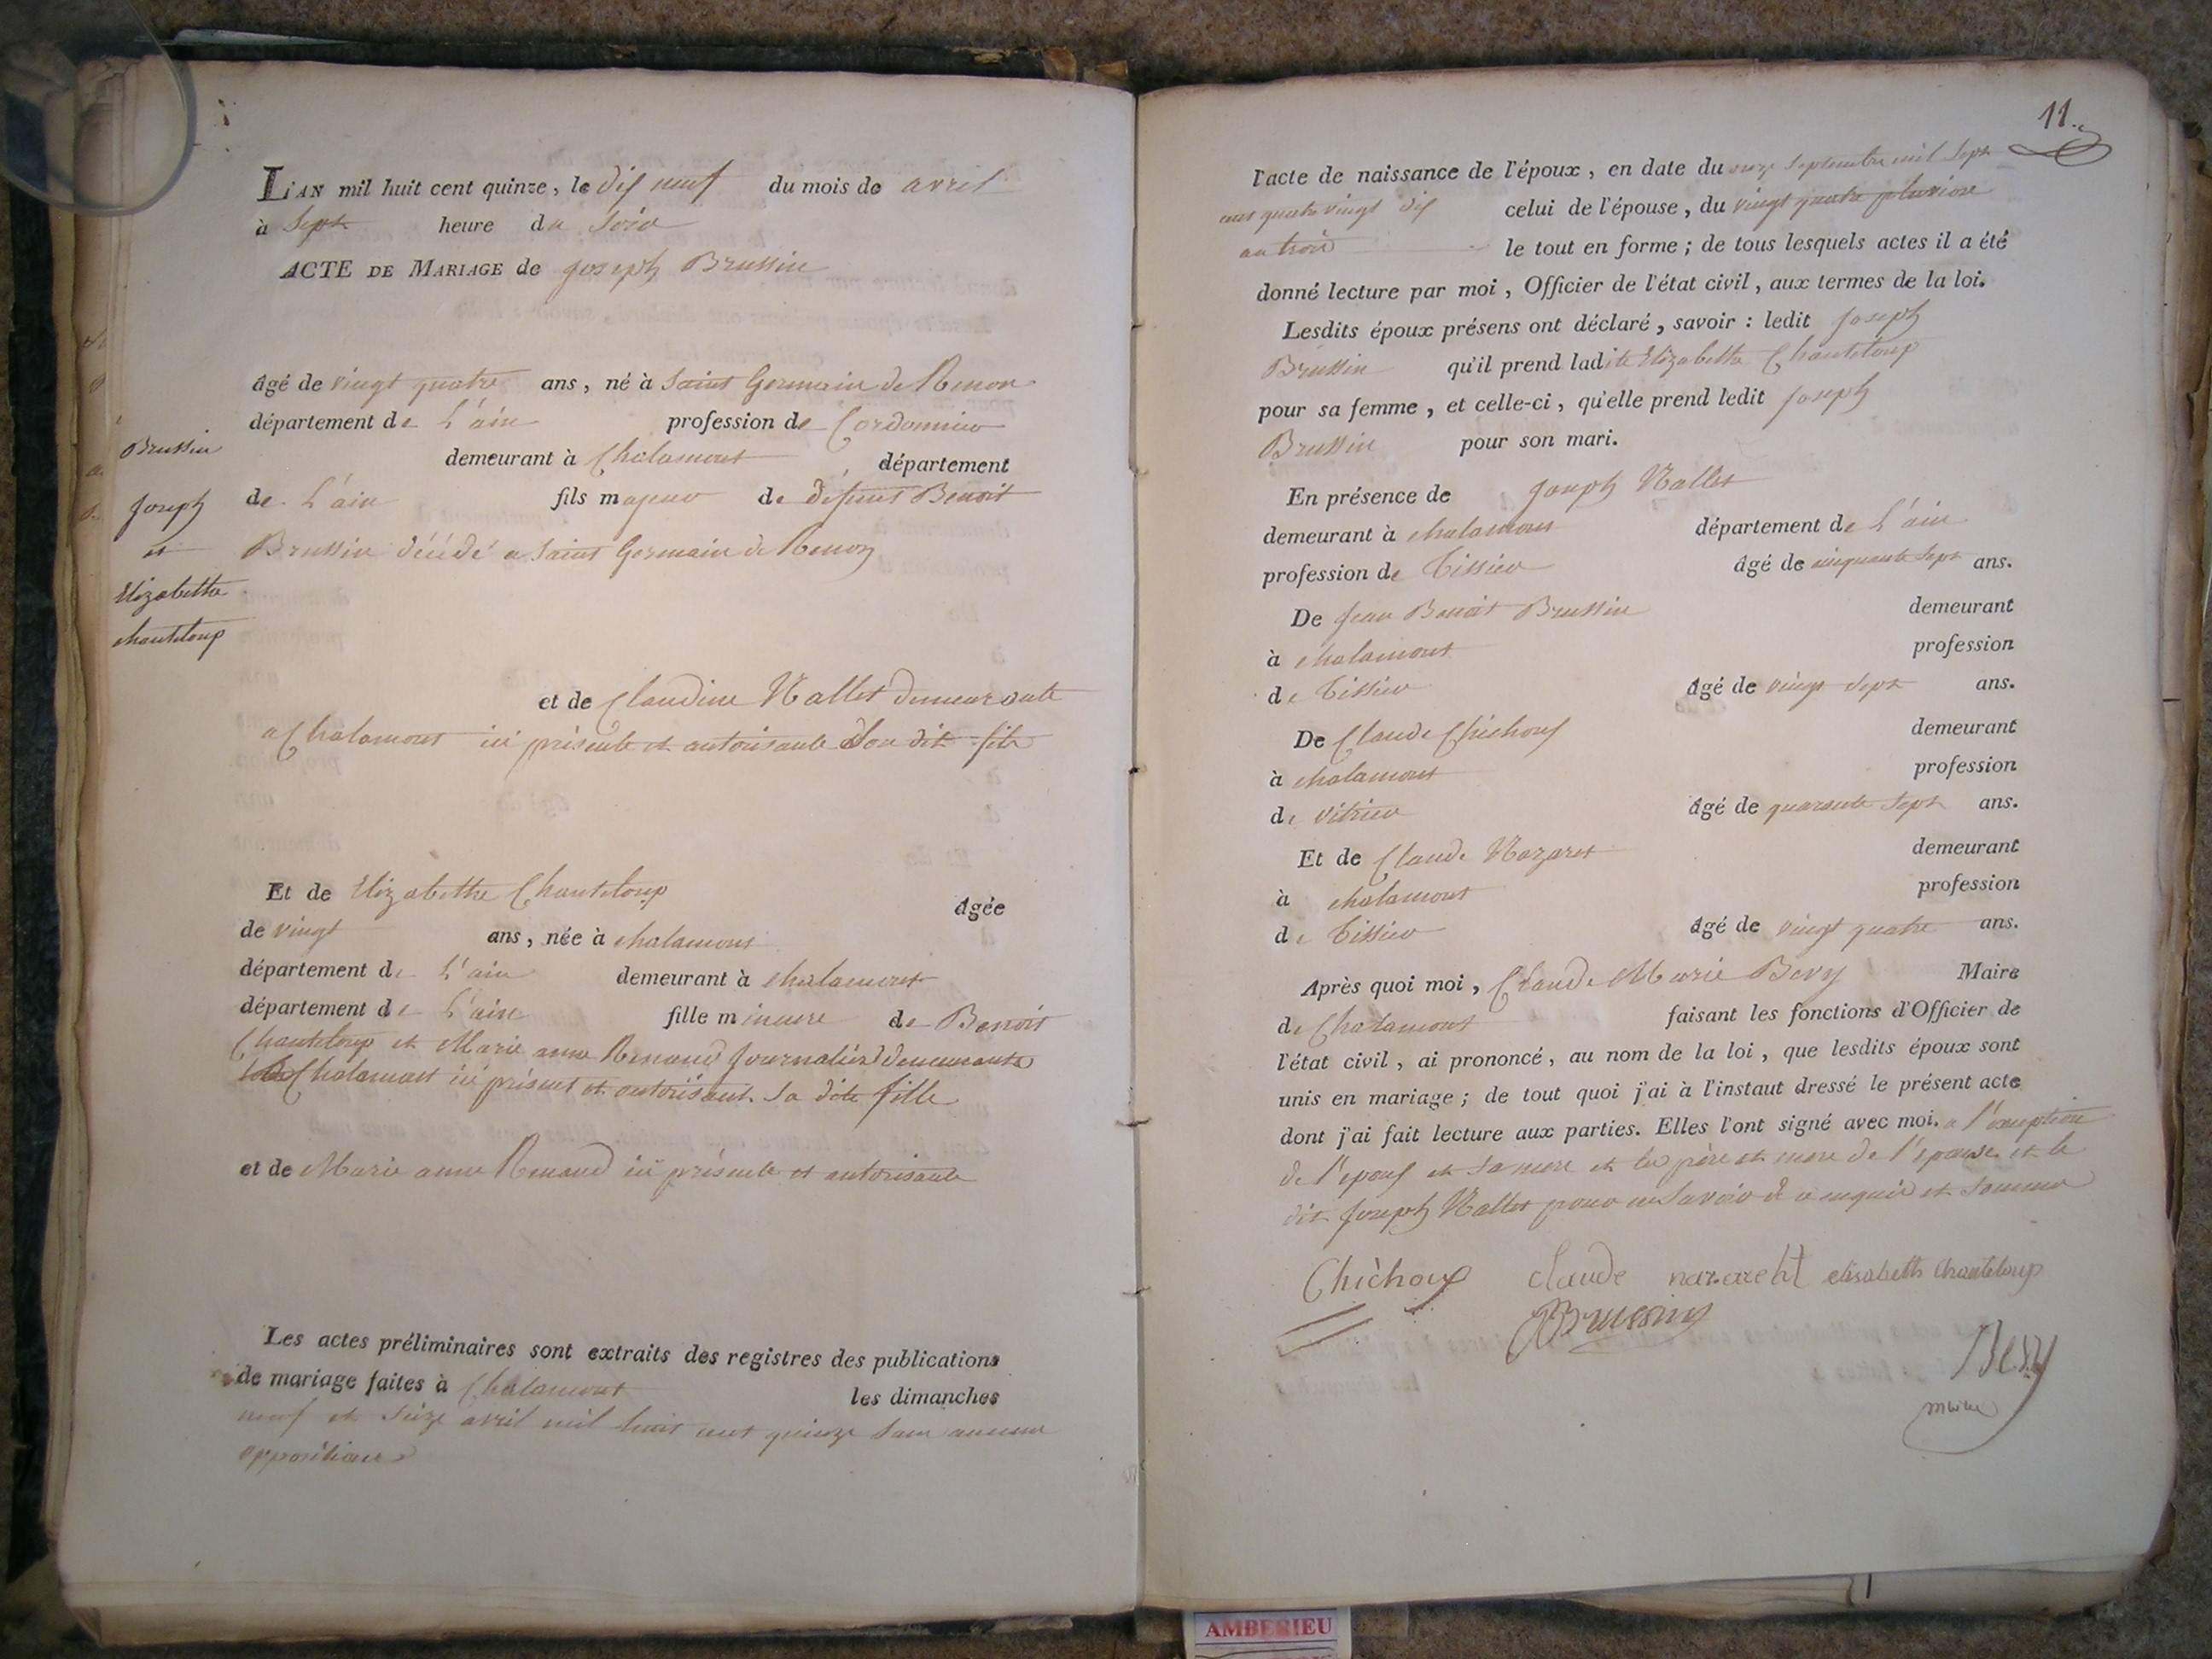 L'AN mil huit cent quinze, le dix neuf du mois de avril
à Sept heure du Soir
ACTE DE MARIAGE de joseph Brussin
âgé de vingt quatre ans, né à Saint Germain de Renon
département de L'ain profession de Cordonnier
demeurant à Chalamont département
de L'ain fils majeur de défunt Benoit
Brussin décédé a Saint Germain de Renon
Brussin
Joseph
et
Elizabethe
chanteloup
et de Claudine Nallet demeurante
a Chalamont ici présente et autorisante Son dit fils
Et de Elizabethe Chanteloup âgée
de vingt ans, née à chalamont
département de L'ain demeurant à chalamont
département de L'ain fille mineure de Benoit
Chanteloup et Marie anne Renaud journaliers demeurants
Chalamont ici présent et autorisant sa dite fille
et de Marie anne Renaud ici présente et autorisante
Les actes préliminaires sont extraits des registres des publications
de mariage faites à Chalamont les dimanches
neuf et seize avril mil huit cent quinze sans aucune
oppositions
11.
l'acte de naissance de l'époux, en date du onze Septembre mil Sept
cent quatre vingt dix celui de l'épouse, du vingt quatre pluviose
an trois le tout en forme; de tous lesquels actes il a été
donné lecture par moi, Officier de l'état civil, aux termes de la loi.
Lesdits époux présens ont déclaré, savoir : ledit Joseph
Brussin qu'il prend ladite Elizabethe Chanteloup
pour sa femme, et celle-ci, qu'elle prend ledit Joseph
Brussin pour son mari.
En présence de Joseph Nallet
demeurant à chalamont département de L'ain
profession de Tissier âgé de cinquante Sept ans.
De Jean Benoit Brussin demeurant
à chalamont profession
de Tissier âgé de vingt Sept ans.
De Claude Chichoux demeurant
à chalamont profession
de vitrier âgé de quarante Sept ans.
Et de Claude Nazaret demeurant
à chalamont profession
de Tissier âgé de vingt quatre ans.
Après quoi moi, Claude Marie Bery Maire
de Chalamont faisant les fonctions d'Officier de
l'état civil, ai prononcé, au nom de la loi, que lesdits époux sont
unis en mariage; de tout quoi j'ai à l'instant dressé le présent acte
dont j'ai fait lecture aux parties. Elles l'ont signé avec moi. a l'exception
de l'epoux et sa mere et les père et mere de l'épouse et le
dit Joseph Nallet pour ne savoir de ce requis et sommé
Chichoux claude nazareht elisabeth chanteloup
Brussin
Bery
maire
AMBERIEU